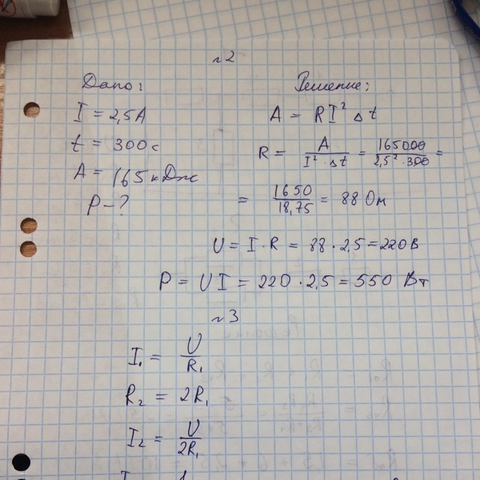 №2
Дано:
I = 2,5А
t = 300с
A = 165кДж
P - ?
Решение:
A = RI² Δt
R = A / I² · Δt = 165000 / 2,5² · 300 =
= 1650 / 18,75 = 88 Ом
U = I · R = 88 · 2,5 = 220 В
P = UI = 220 · 2,5 = 550 Вт
№3
I₁ = U / R₁
R₂ = 2R₁
I₂ = U / 2R₁